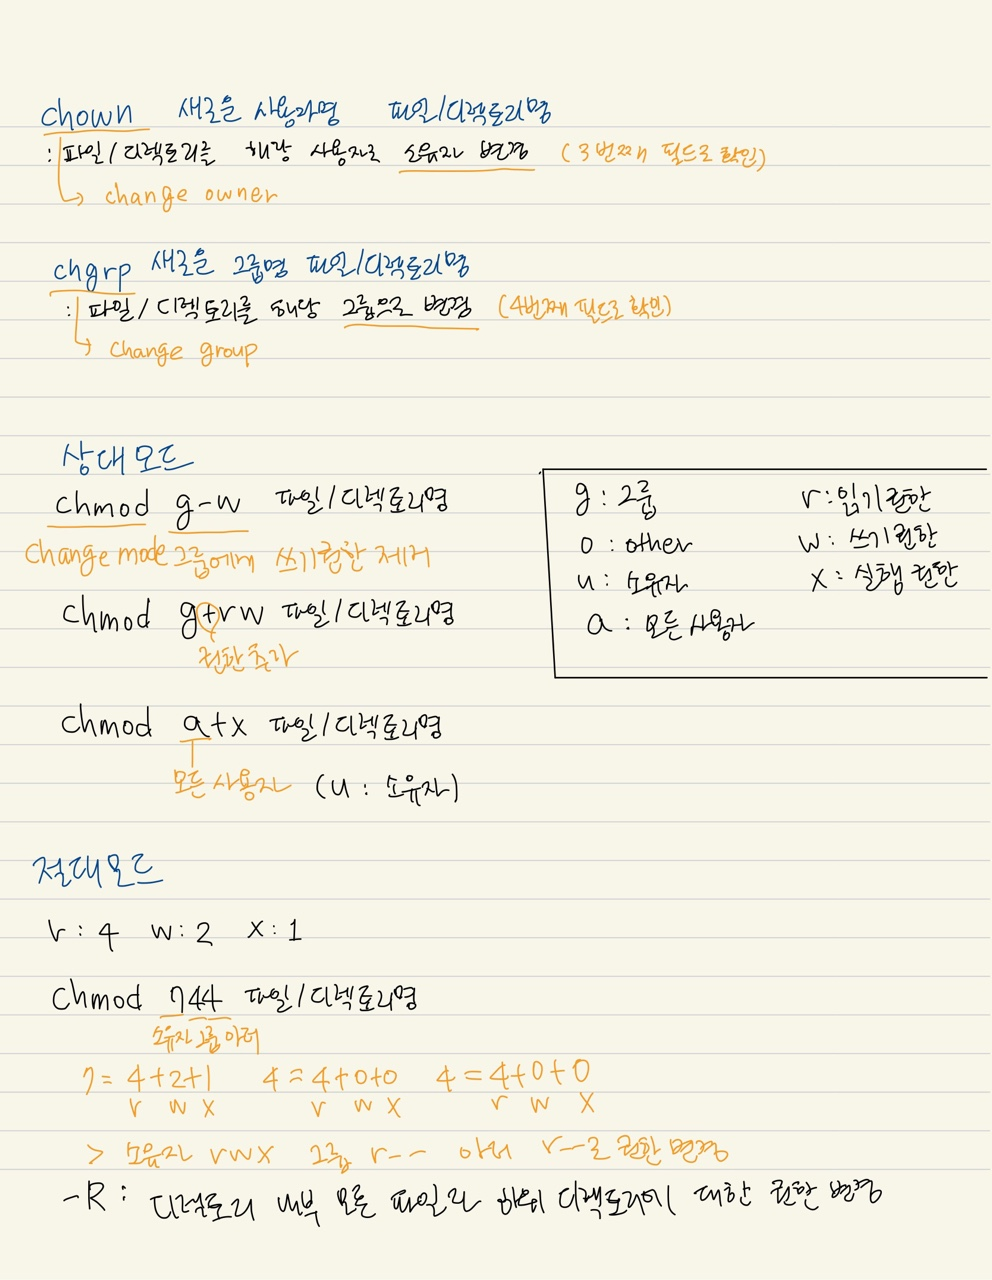 chown 새로운 사용자명 파일/디렉토리명
: 파일/디렉토리를 해당 사용자로 소유자 변경 (3번째 필드로 확인)
change owner
chgrp 새로운 그룹명 파일/디렉토리명
: 파일/디렉토리를 해당 그룹으로 변경 (4번째 필드로 확인)
change group
상대모드
chmod g-w 파일/디렉토리명
change mode 그룹에게 쓰기권한 제거
chmod g+rw 파일/디렉토리명
권한 추가
chmod a+x 파일/디렉토리명
모든 사용자 (u : 소유자)
g : 그룹 r : 읽기권한
o : other w : 쓰기권한
u : 소유자 x : 실행 권한
a : 모든 사용자
절대모드
r : 4 w : 2 x : 1
chmod 744 파일/디렉토리명
소유자 그룹 아더
7 = 4+2+1 4 = 4+0+0 4 = 4+0+0
r w x r w x r w x
> 소유자 rwx 그룹 r-- 아더 r--로 권한 변경
-R : 디렉토리 내부 모든 파일과 하위 디렉토리에 대한 권한 변경